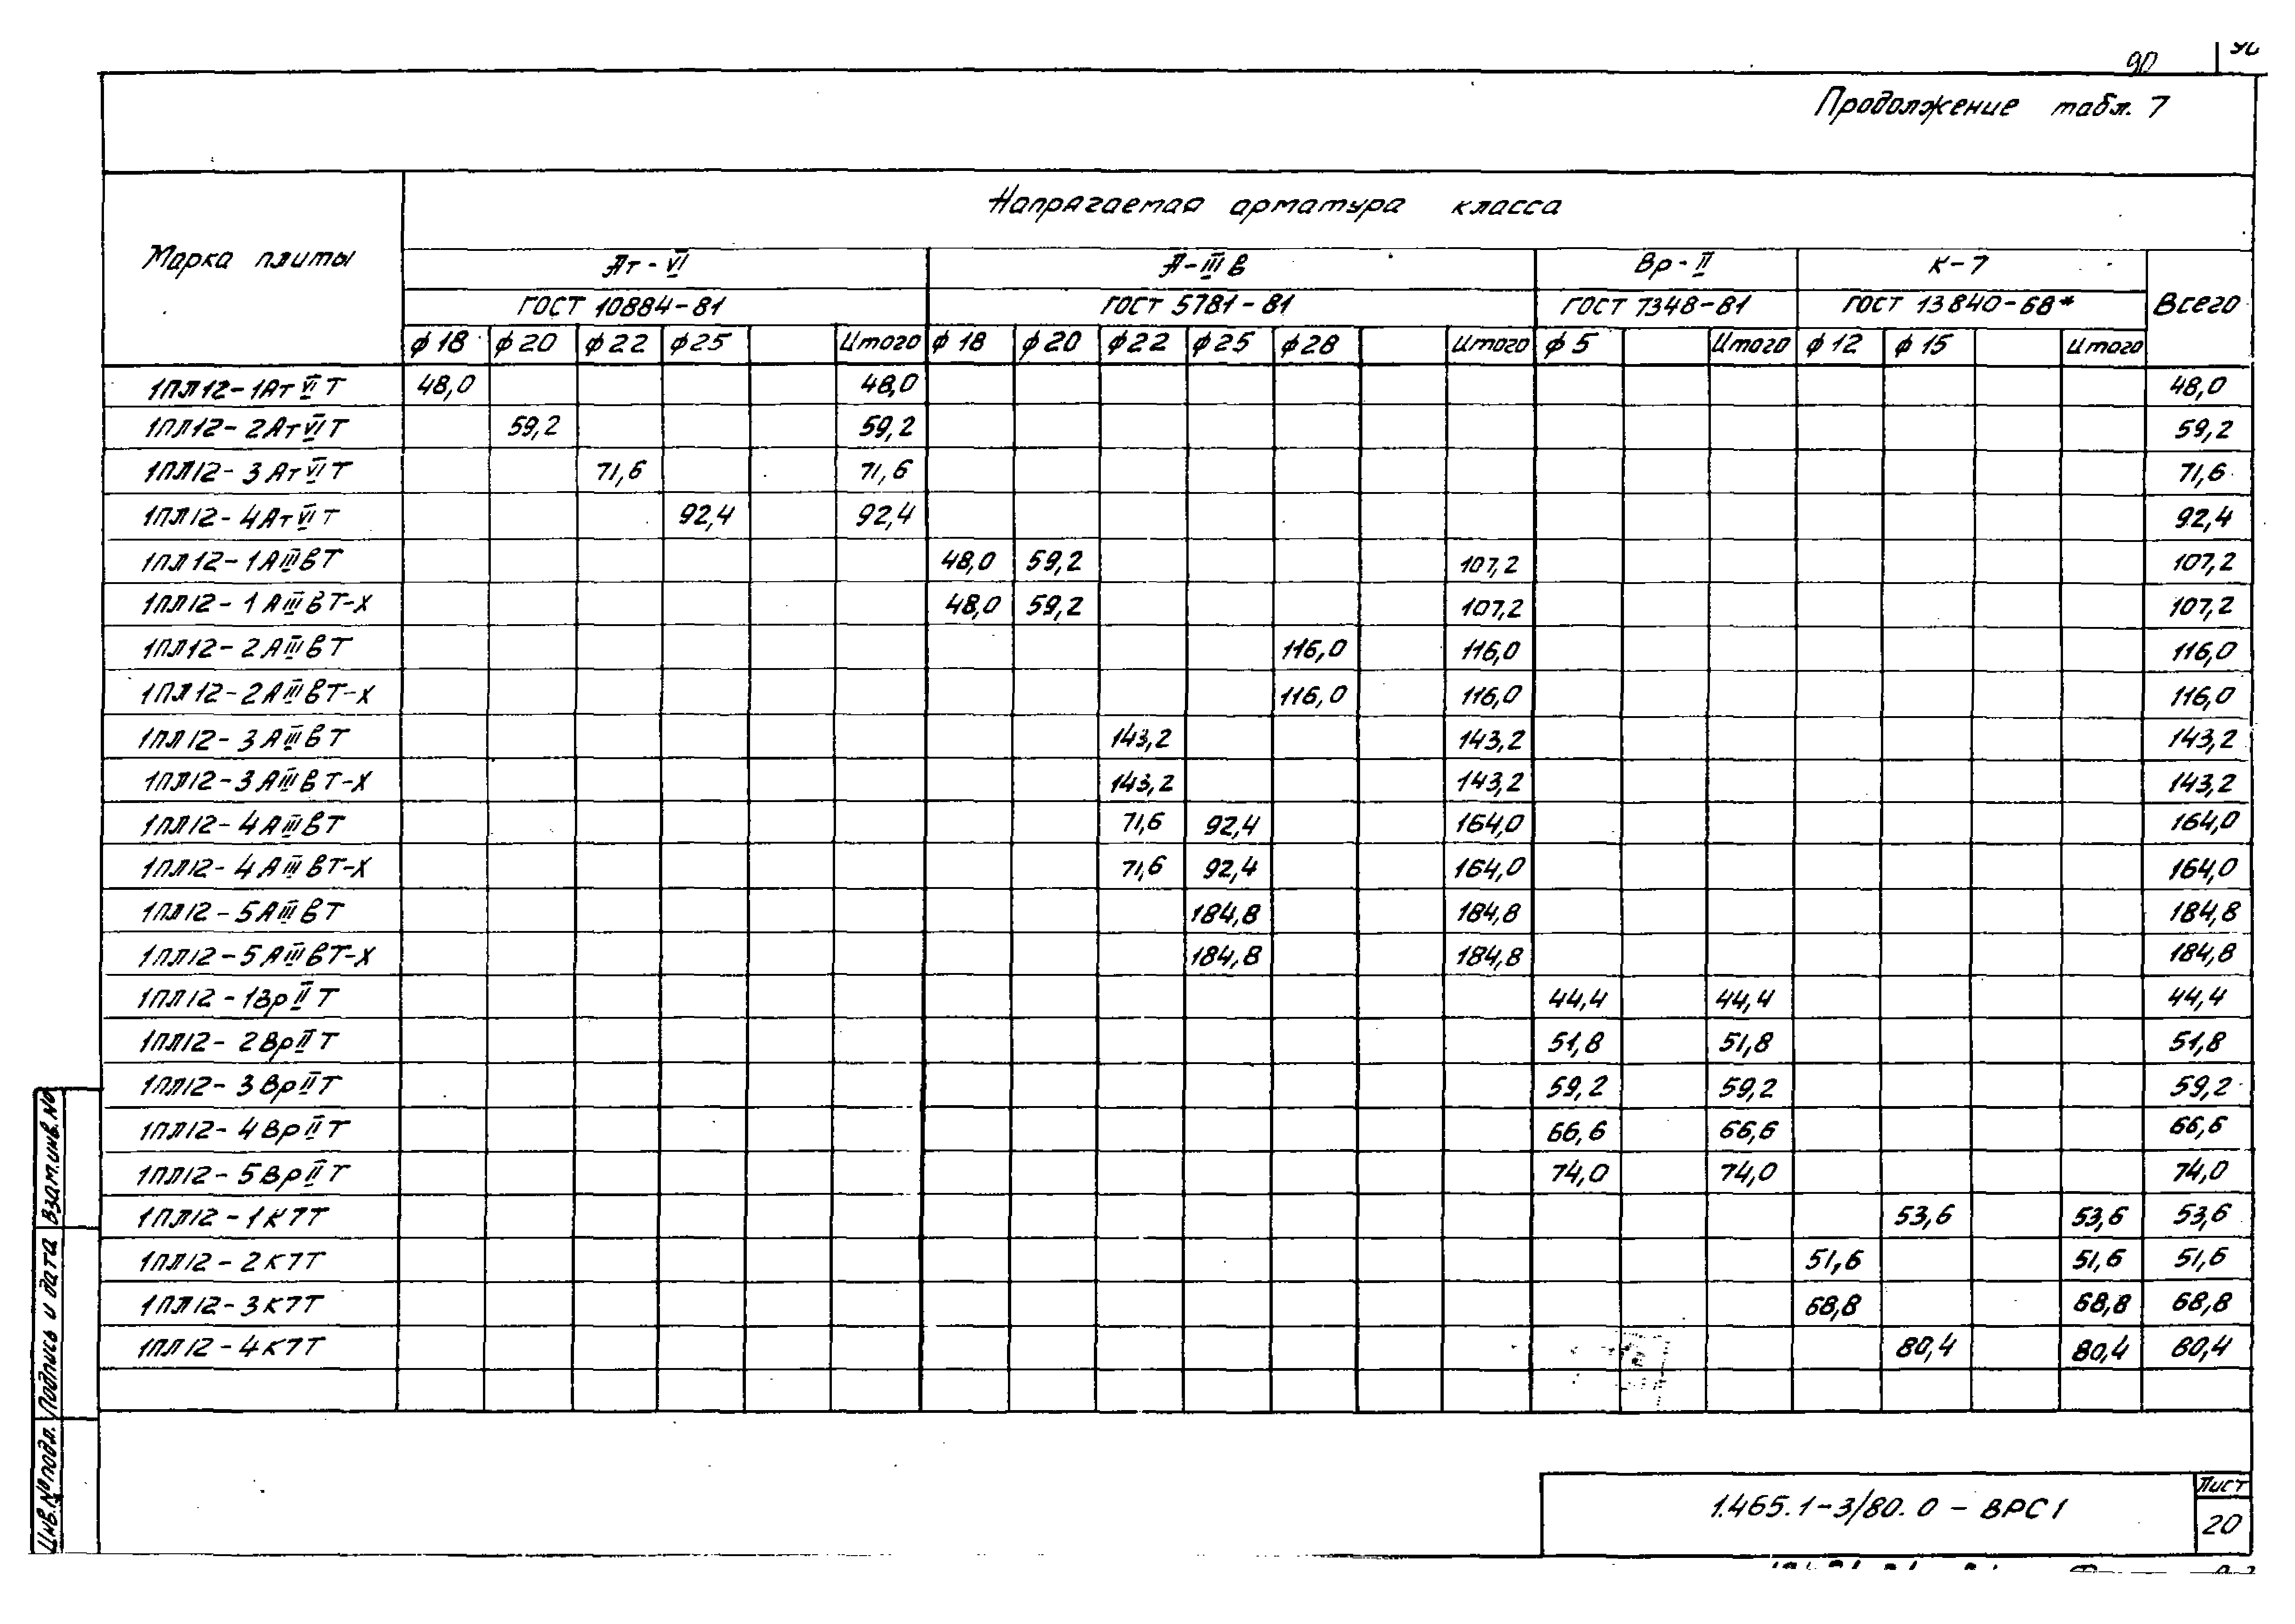 90
Продолжение табл. 7
Марка плиты
Напрягаемая арматура класса
Ат-VI
А-IIIв
Вр-II
К-7
Всего
ГОСТ 10884-81
ГОСТ 5781-81
ГОСТ 7348-81
ГОСТ 13840-68*
ф18 ф20 ф22 ф25 Итого ф18 ф20 ф22 ф25 ф28 Итого ф5 Итого ф12 ф15 Итого
1ПЛ12-1АтVIТ 48,0 48,0 48,0
1ПЛ12-2АтVIТ 59,2 59,2 59,2
1ПЛ12-3АтVIТ 71,6 71,6 71,6
1ПЛ12-4АтVIТ 92,4 92,4 92,4
1ПЛ12-1АIIIвТ 48,0 59,2 107,2 107,2
1ПЛ12-1АIIIвТ-Х 48,0 59,2 107,2 107,2
1ПЛ12-2АIIIвТ 116,0 116,0 116,0
1ПЛ12-2АIIIвТ-Х 116,0 116,0 116,0
1ПЛ12-3АIIIвТ 143,2 143,2 143,2
1ПЛ12-3АIIIвТ-Х 143,2 143,2 143,2
1ПЛ12-4АIIIвТ 71,6 92,4 164,0 164,0
1ПЛ12-4АIIIвТ-Х 71,6 92,4 164,0 164,0
1ПЛ12-5АIIIвТ 184,8 184,8 184,8
1ПЛ12-5АIIIвТ-Х 184,8 184,8 184,8
1ПЛ12-1ВрIIТ 44,4 44,4 44,4
1ПЛ12-2ВрIIТ 51,8 51,8 51,8
1ПЛ12-3ВрIIТ 59,2 59,2 59,2
1ПЛ12-4ВрIIТ 66,6 66,6 66,6
1ПЛ12-5ВрIIТ 74,0 74,0 74,0
1ПЛ12-1К7Т 53,6 53,6 53,6
1ПЛ12-2К7Т 51,6 51,6 51,6
1ПЛ12-3К7Т 68,8 68,8 68,8
1ПЛ12-4К7Т 80,4 80,4 80,4
Взам.инв.№
Подпись и дата
Инв.№ подл.
1.465.1-3/80.0-ВРС1
Лист
20